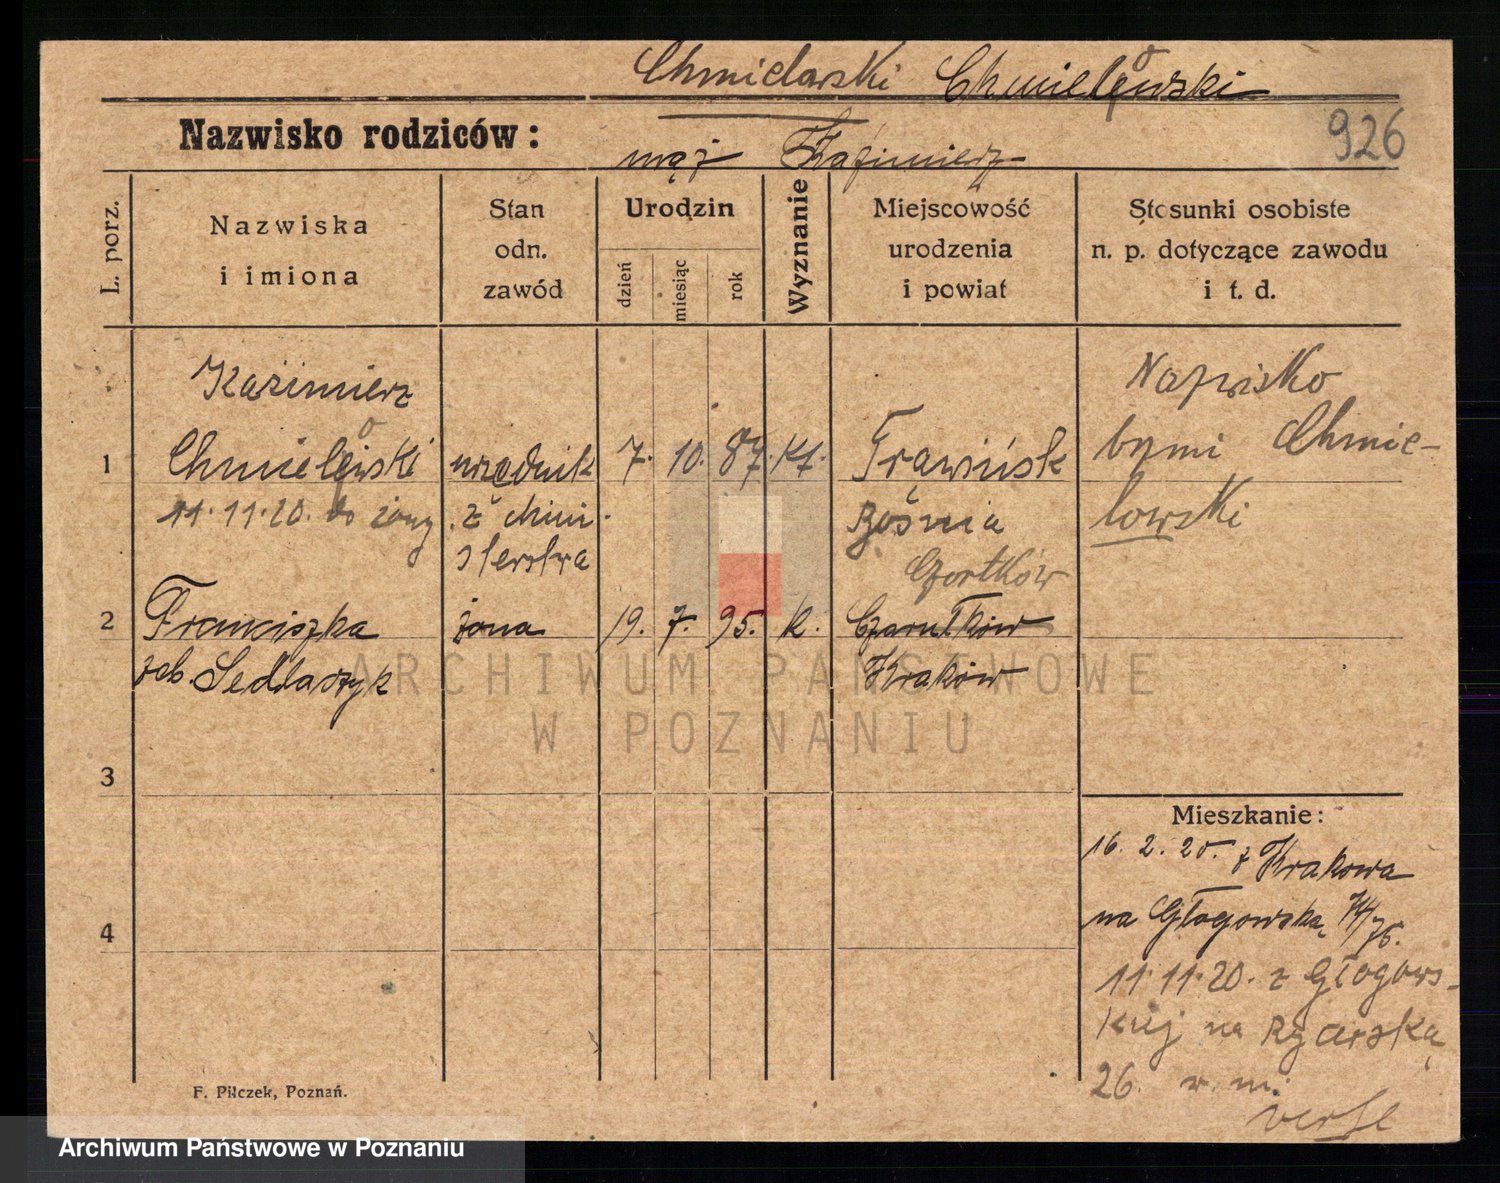 Chmielarski Chmielowski
Nazwisko rodziców:
mąż Kazimierz
926
L. porz.
Nazwiska
i imiona
Stan
odn.
zawód
Urodzin
dzień
miesiąc
rok
Wyznanie
Miejscowość
urodzenia
i powiat
Stosunki osobiste
n. p. dotyczące zawodu
i t. d.
Kazimierz
1 Chmielowski urzędnik 7. 10. 87. kt. Trawińsk
11.11.20. do żony z mini-
sterstwa
Bośnia
Czortków
Nazwisko
brzmi Chmie-
lowski
2 Franciszka żona 19. 7. 95. k.
Kraków
3
4
Mieszkanie:
16. 2. 20. z Krakowa
na Głogowską 74/75.
11.11.20. z Głogows-
kiej na Rycerską
26.
verte
F. Pilczek, Poznań.
ARCHIWUM PAŃSTWOWE
W POZNANIU
Archiwum Państwowe w Poznaniu